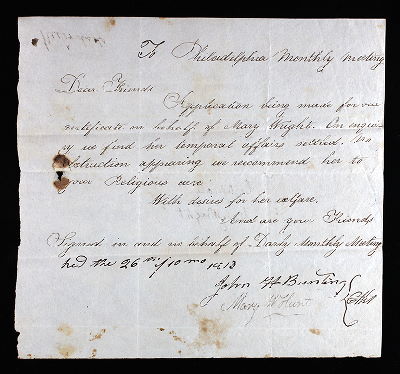 To Philadelphia Monthly Meeting
Dear Friends
Application being made for our
certificate on behalf of Mary Wright. On enquir
y we find her temporal affairs settled. No
obstruction appearing we recommend her to
your Religious care
With desires for her welfare,
And are your Friends
Signed in and on behalf of Darby Monthly Meeting
held the 26 of 10 mo
John H Bunting
Mary W Hunt
Clks